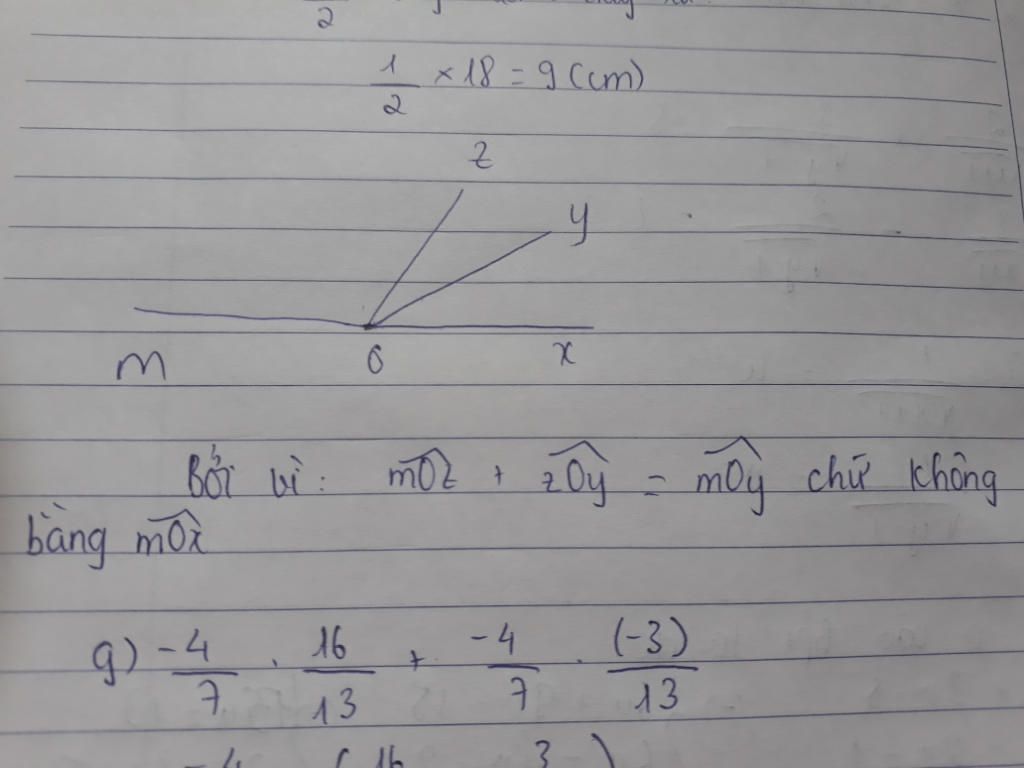 2
1/2 × 18 = 9 (cm)
z
y
m O x
Bởi vì: mOz + zOy = mOy chứ không
bằng mOx
g) -4/7 . 16/13 + -4/7 . (-3)/13
-4 ( 16 3 )